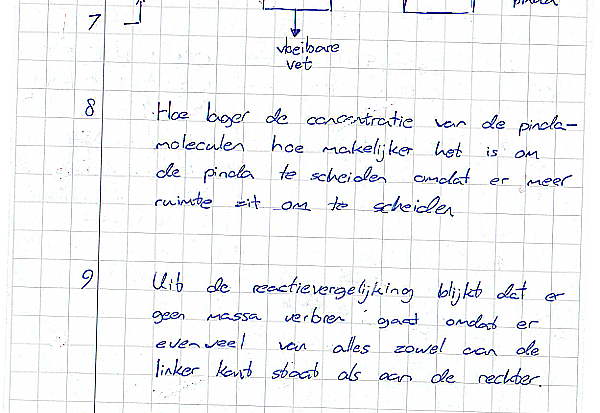 pinda
7
vloeibare
vet
8 Hoe lager de concentratie van de pinda-
moleculen hoe makelijker het is om
de pinda te scheiden omdat er meer
ruimte zit om te scheiden
9 Uit de reactievergelijking blijkt dat er
geen massa verbren gaat omdat er
evenveel van alles zowel aan de
linker kant staat als aan de rechter.